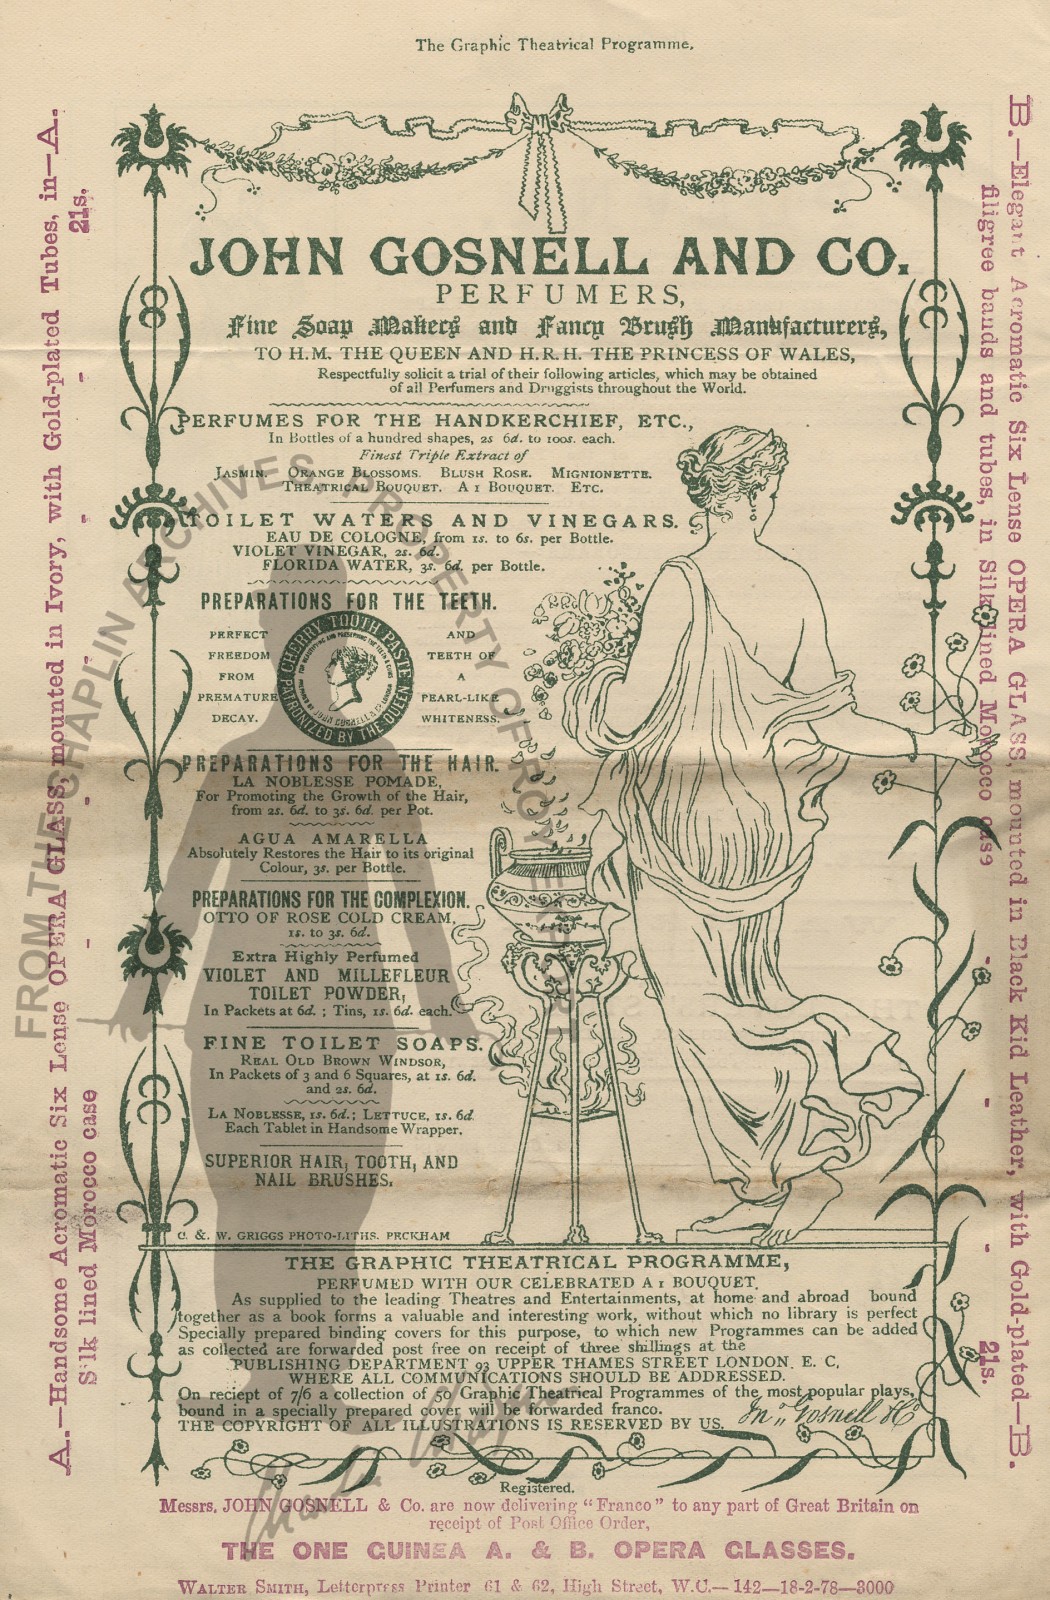 The Graphic Theatrical Programme.
JOHN GOSNELL AND CO.
PERFUMERS,
Fine Soap Makers and Fancy Brush Manufacturers,
TO H.M. THE QUEEN AND H.R.H. THE PRINCESS OF WALES,
Respectfully solicit a trial of their following articles, which may be obtained
of all Perfumers and Druggists throughout the World.
PERFUMES FOR THE HANDKERCHIEF, ETC.,
In Bottles of a hundred shapes, 2s 6d. to 100s. each.
Finest Triple Extract of
JASMIN. ORANGE BLOSSOMS. BLUSH ROSE. MIGNIONETTE.
THEATRICAL BOUQUET. A 1 BOUQUET. ETC.
TOILET WATERS AND VINEGARS.
EAU DE COLOGNE, from 1s. to 6s. per Bottle.
VIOLET VINEGAR, 2s. 6d.
FLORIDA WATER, 3s. 6d. per Bottle.
PREPARATIONS FOR THE TEETH.
PERFECT
FREEDOM
FROM
PREMATURE
DECAY.
CHERRY TOOTH PASTE
PATRONIZED BY THE QUEEN
FOR BEAUTIFYING AND PRESERVING THE TEETH & GUMS
JOHN GOSNELL & CO. LONDON
AND
TEETH OF
A
PEARL-LIKE
WHITENESS.
PREPARATIONS FOR THE HAIR.
LA NOBLESSE POMADE,
For Promoting the Growth of the Hair,
from 2s. 6d. to 3s. 6d. per Pot.
AGUA AMARELLA
Absolutely Restores the Hair to its original
Colour, 3s. per Bottle.
PREPARATIONS FOR THE COMPLEXION.
OTTO OF ROSE COLD CREAM,
1s. to 3s. 6d.
Extra Highly Perfumed
VIOLET AND MILLEFLEUR
TOILET POWDER,
In Packets at 6d. ; Tins, 1s. 6d. each.
FINE TOILET SOAPS.
REAL OLD BROWN WINDSOR,
In Packets of 3 and 6 Squares, at 1s. 6d.
and 2s. 6d.
LA NOBLESSE, 1s. 6d.; LETTUCE, 1s. 6d
Each Tablet in Handsome Wrapper.
SUPERIOR HAIR, TOOTH, AND
NAIL BRUSHES.
C. & W. GRIGGS PHOTO-LITHS. PECKHAM
THE GRAPHIC THEATRICAL PROGRAMME,
PERFUMED WITH OUR CELEBRATED A 1 BOUQUET.
As supplied to the leading Theatres and Entertainments, at home and abroad bound
together as a book forms a valuable and interesting work, without which no library is perfect
Specially prepared binding covers for this purpose, to which new Programmes can be added
as collected are forwarded post free on receipt of three shillings at the
PUBLISHING DEPARTMENT 93 UPPER THAMES STREET LONDON. E. C,
WHERE ALL COMMUNICATIONS SHOULD BE ADDRESSED.
On reciept of 7/6 a collection of 50 Graphic Theatrical Programmes of the most popular plays,
bound in a specially prepared cover will be forwarded franco.
THE COPYRIGHT OF ALL ILLUSTRATIONS IS RESERVED BY US.
Jno Gosnell & Co
Registered.
Messrs. JOHN GOSNELL & Co. are now delivering "Franco" to any part of Great Britain on
receipt of Post Office Order,
THE ONE GUINEA A. & B. OPERA GLASSES.
WALTER SMITH, Letterpress Printer 61 & 62, High Street, W.C.—142—18-2-78—3000
A.—Handsome Acromatic Six Lense OPERA GLASS, mounted in Ivory, with Gold-plated Tubes, in—A.
Silk lined Morocco case - - - - 21s.
B.—Elegant Acromatic Six Lense OPERA GLASS, mounted in Black Kid Leather, with Gold-plated—B.
filigree bands and tubes, in Silk lined Morocco case - - - 21s.
FROM THE CHAPLIN ARCHIVES PROPERTY OF ROY EXPORT
Charles Chaplin